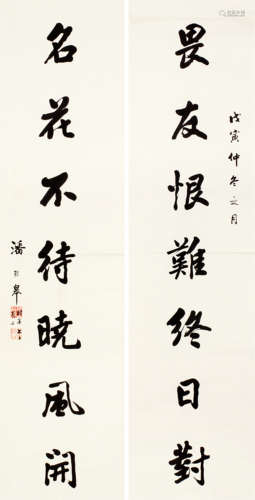 畏友恨難終日對
戊寅仲冬之月
名花不待曉風開
潘齡皋